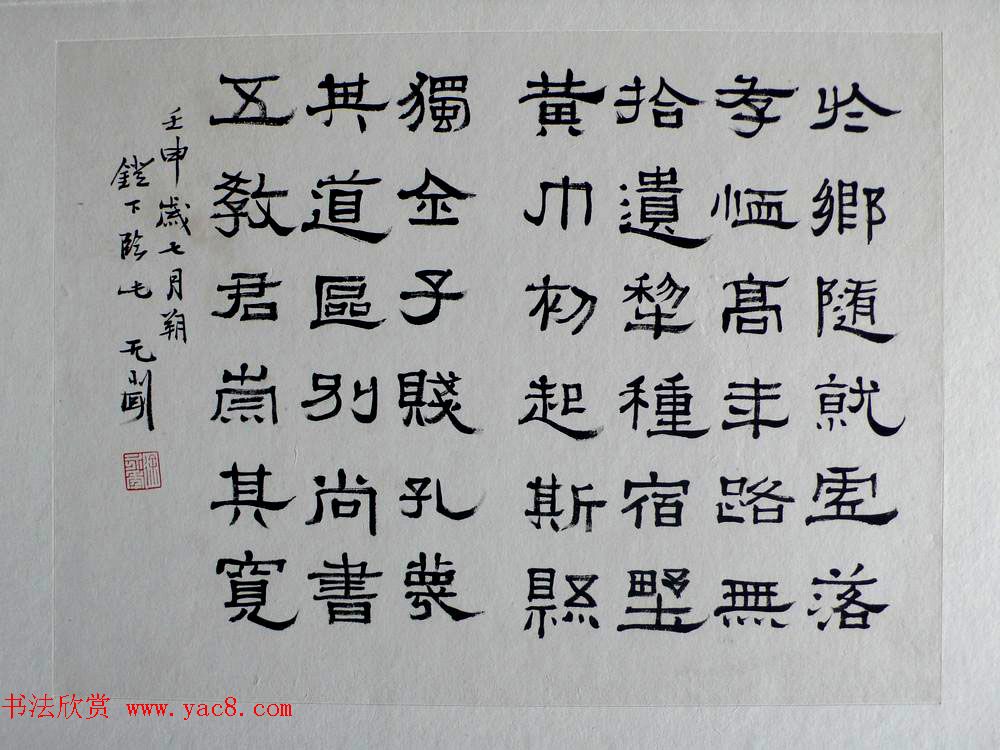 於鄉隨就虛落
存恤高年路無
拾遺犂種宿野
黃巾初起斯縣
獨全子賤孔蔑
其道區別尚書
五教君崇其寬
壬申歲七月朔
鐙下臨此 无聞
书法欣赏 www.yac8.com